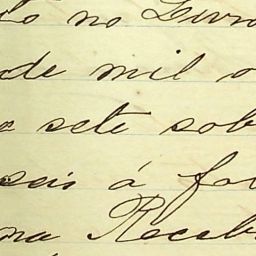 to no Livro
de mil o
e sete sob
seis á fol
na Receb